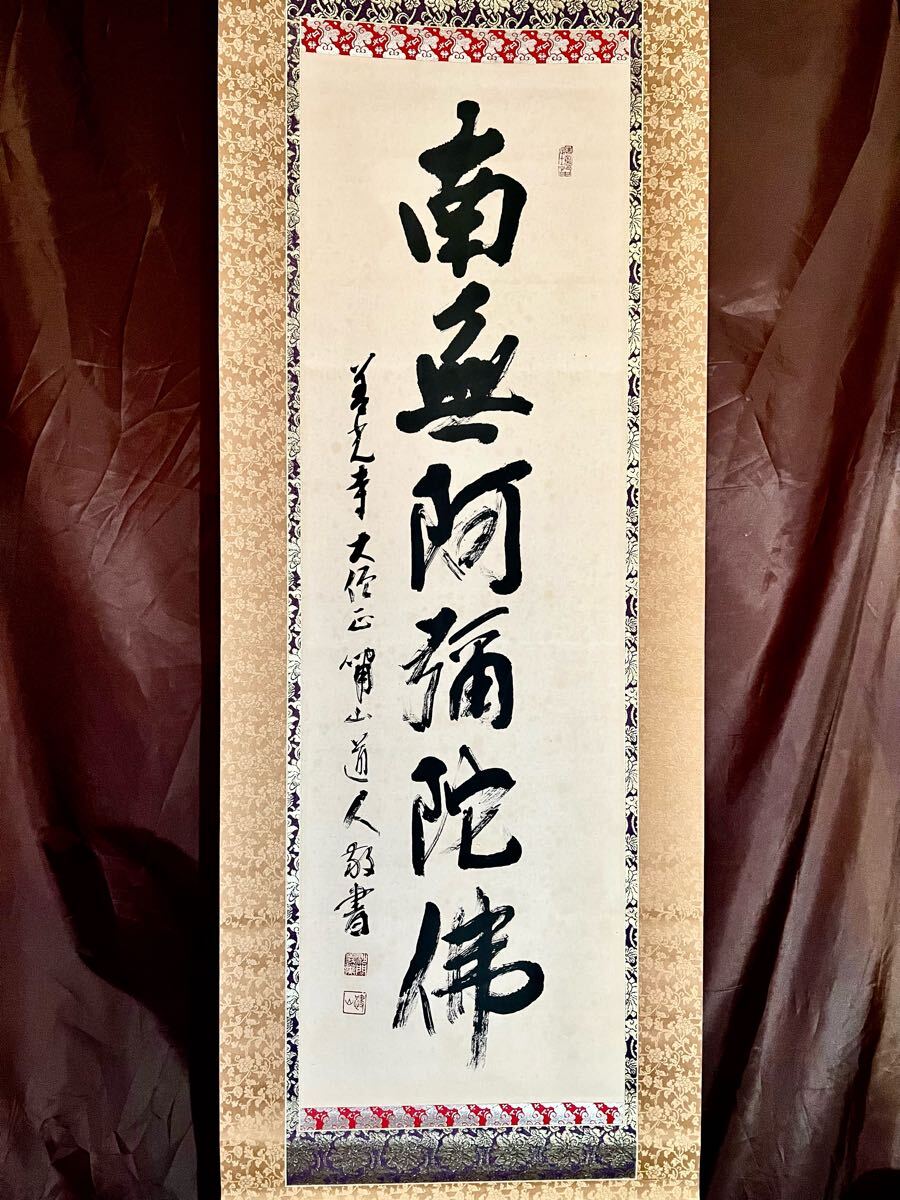 南無阿彌陀佛
善光寺大僧正 山道人敬書